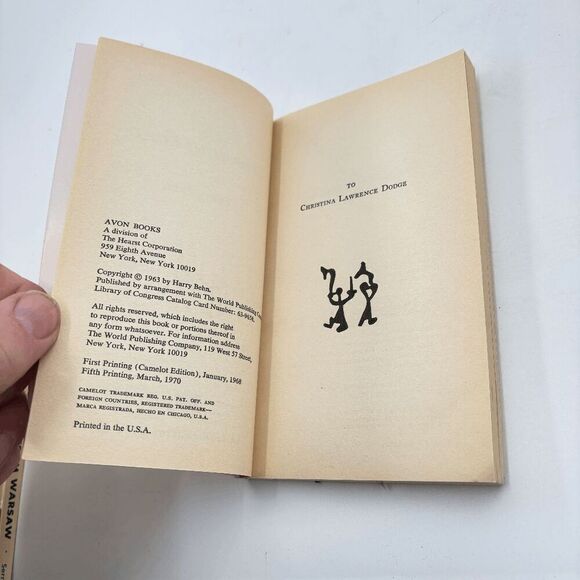 AVON BOOKS
A division of
The Hearst Corporation
959 Eighth Avenue
New York, New York 10019
Copyright © 1963 by Harry Behn.
Published by arrangement with The World Publishing
Library of Congress Catalog Card Number: 63-9658.
All rights reserved, which includes the right
to reproduce this book or portions thereof in
any form whatsoever. For information address
The World Publishing Company, 119 West 57 Street,
New York, New York 10019
First Printing (Camelot Edition), January, 1968
Fifth Printing, March, 1970
CAMELOT TRADEMARK REG. U.S. PAT. OFF. AND
FOREIGN COUNTRIES, REGISTERED TRADEMARK—
MARCA REGISTRADA, HECHO EN CHICAGO, U.S.A.
Printed in the U.S.A.
TO
CHRISTINA LAWRENCE DODGE
WARSAW